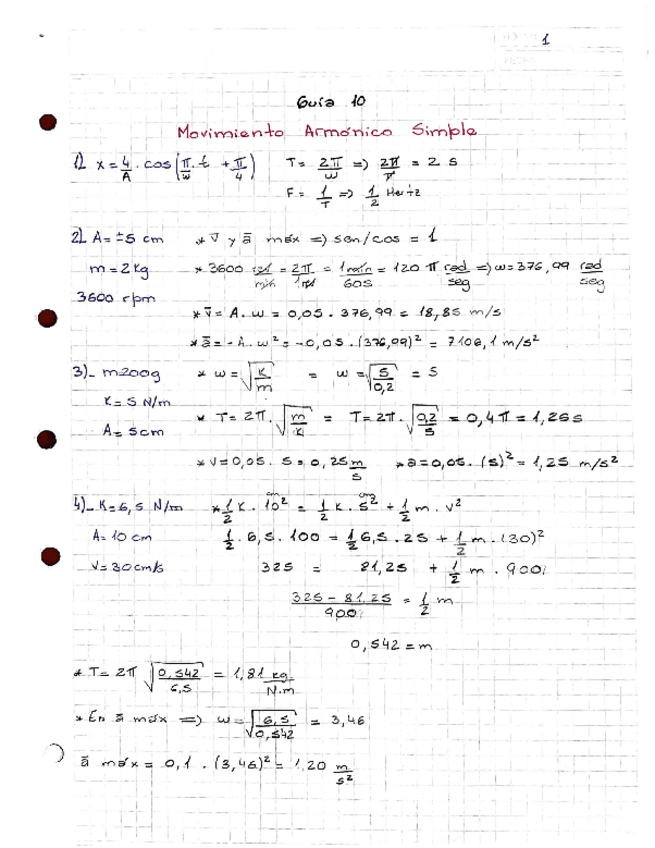 1
Guía 10
Movimiento Armónico Simple
1) x = 4/A . cos(π/w . t + π/4)    T = 2π/w => 2π/π = 2 s
F = 1/T => 1/2 Hertz
2) A = ±5 cm    * v̄ y ā máx => sen/cos = 1
m = 2 Kg    * 3600 rad/min = 2π/1rd = 1min/60s = 120 π rad/seg => w = 376,99 rad/seg
3600 rpm
* v̄ = A . w = 0,05 . 376,99 = 18,85 m/s
* ā = -A . w² = -0,05 . (376,99)² = 7106,1 m/s²
3)_ m=200g    * w = √(K/m) = w = √(5/0,2) = 5
K = 5 N/m    * T = 2π . √(m/K) = T = 2π . √(0,2/5) = 0,4π = 1,26s
A = 5cm
* v = 0,05 . 5 = 0,25 m/s    * a = 0,05 . (5)² = 1,25 m/s²
4)_ K = 6,5 N/m    * 1/2 K . 10cm² = 1/2 K . 5cm² + 1/2 m . v²
A = 10 cm    1/2 . 6,5 . 100 = 1/2 6,5 . 25 + 1/2 m . (30)²
V = 30cm/s    325 = 81,25 + 1/2 m . 900
325 - 81,25 / 900 = 1/2 m
0,542 = m
* T = 2π √(0,542/6,5) = 1,81 kg/N.m
* En ā máx => w = √(6,5/0,542) = 3,46
ā máx = 0,1 . (3,46)² = 1,20 m/s²